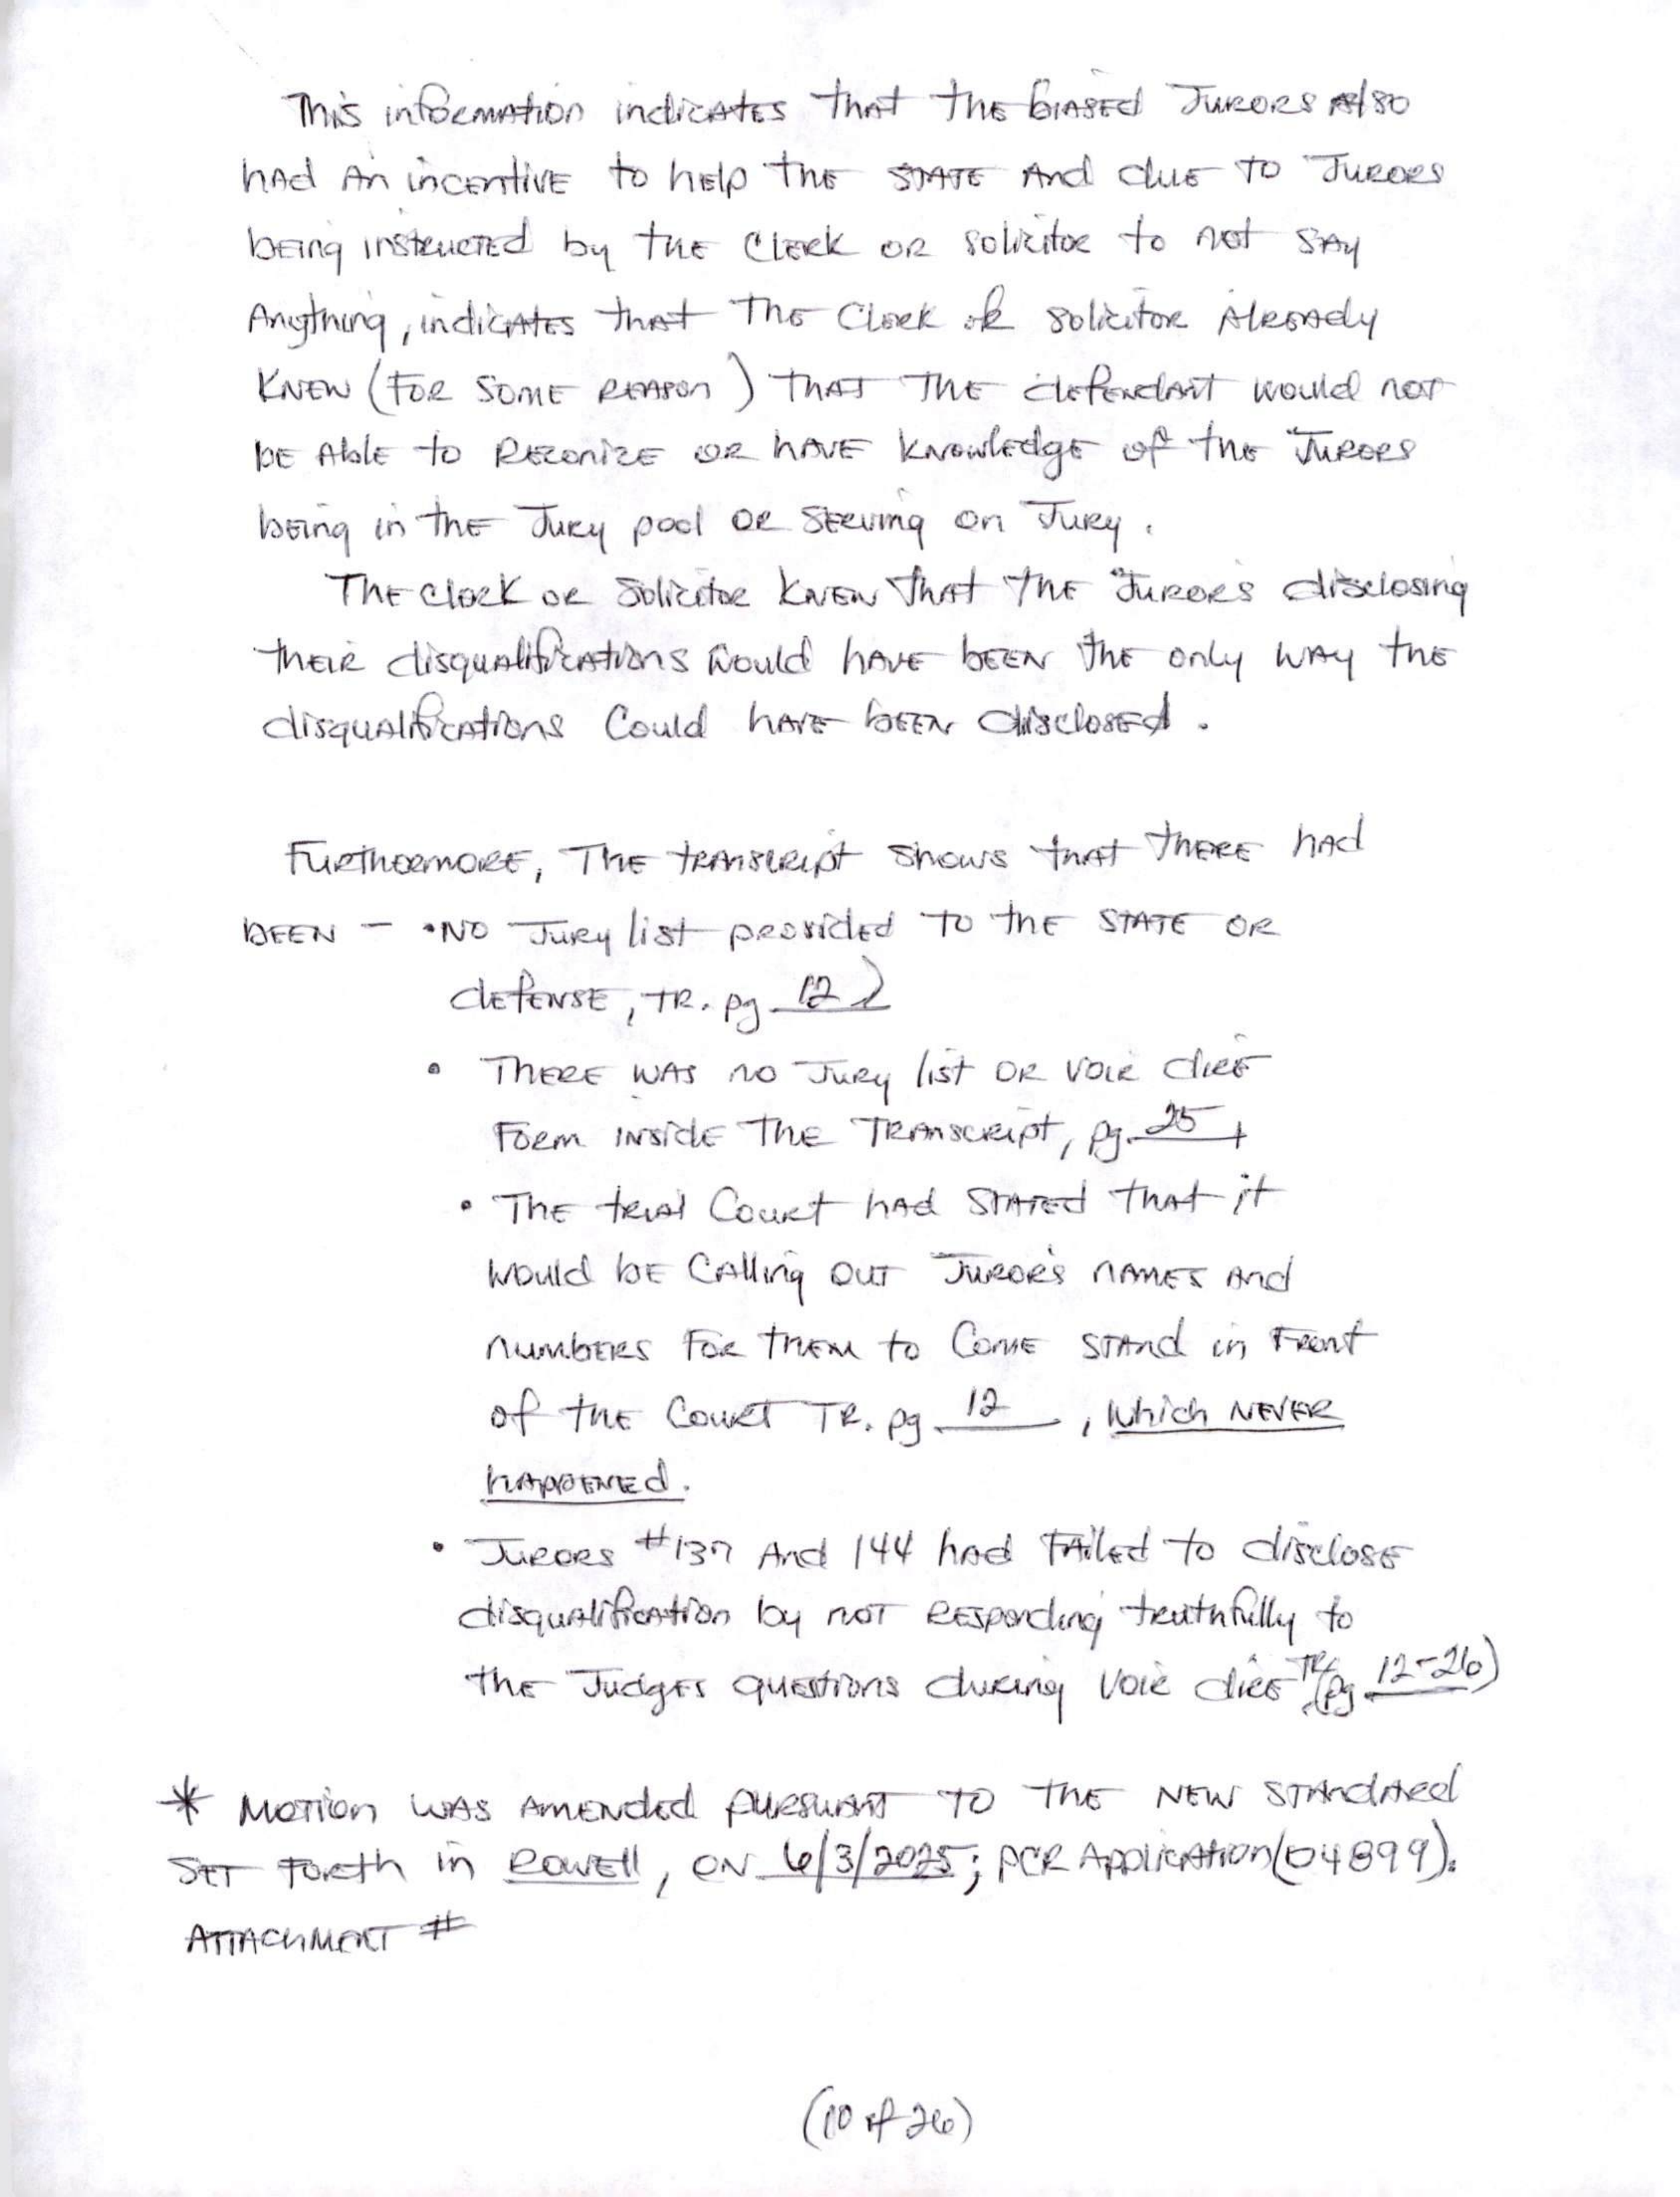 This information indicates that the biased Jurors also
had an incentive to help the State and due to Jurors
being instructed by the Clerk or solicitor to not say
Anything, indicates that The Clerk or solicitor Already
Knew (For some reason) that the defendant would not
be Able to Reconize or have knowledge of the Jurors
being in the Jury pool or serving on Jury.
The Clerk or Solicitor knew that the Juror's disclosing
their disqualifications would have been the only way the
disqualifications Could have been disclosed.
Furthermore, The transcript shows that there had
been - • No Jury list provided to the State or
defense, TR. pg. 12)
• There was no Jury list or voir dire
Form inside the Transcript, pg. 25
• The trial Court had stated that it
would be Calling out Juror's names and
numbers for them to Come stand in Front
of the Court TR. pg 12, which never
happened.
• Jurors #137 And 144 had Failed to disclose
disqualification by not responding truthfully to
the Judges questions during voir dire TR (pg 12-26)
* Motion was amended pursuant to the new standard
set forth in Rowell, on 6/3/2025; PCR Application(04899).
Attachment #
(10 of 26)